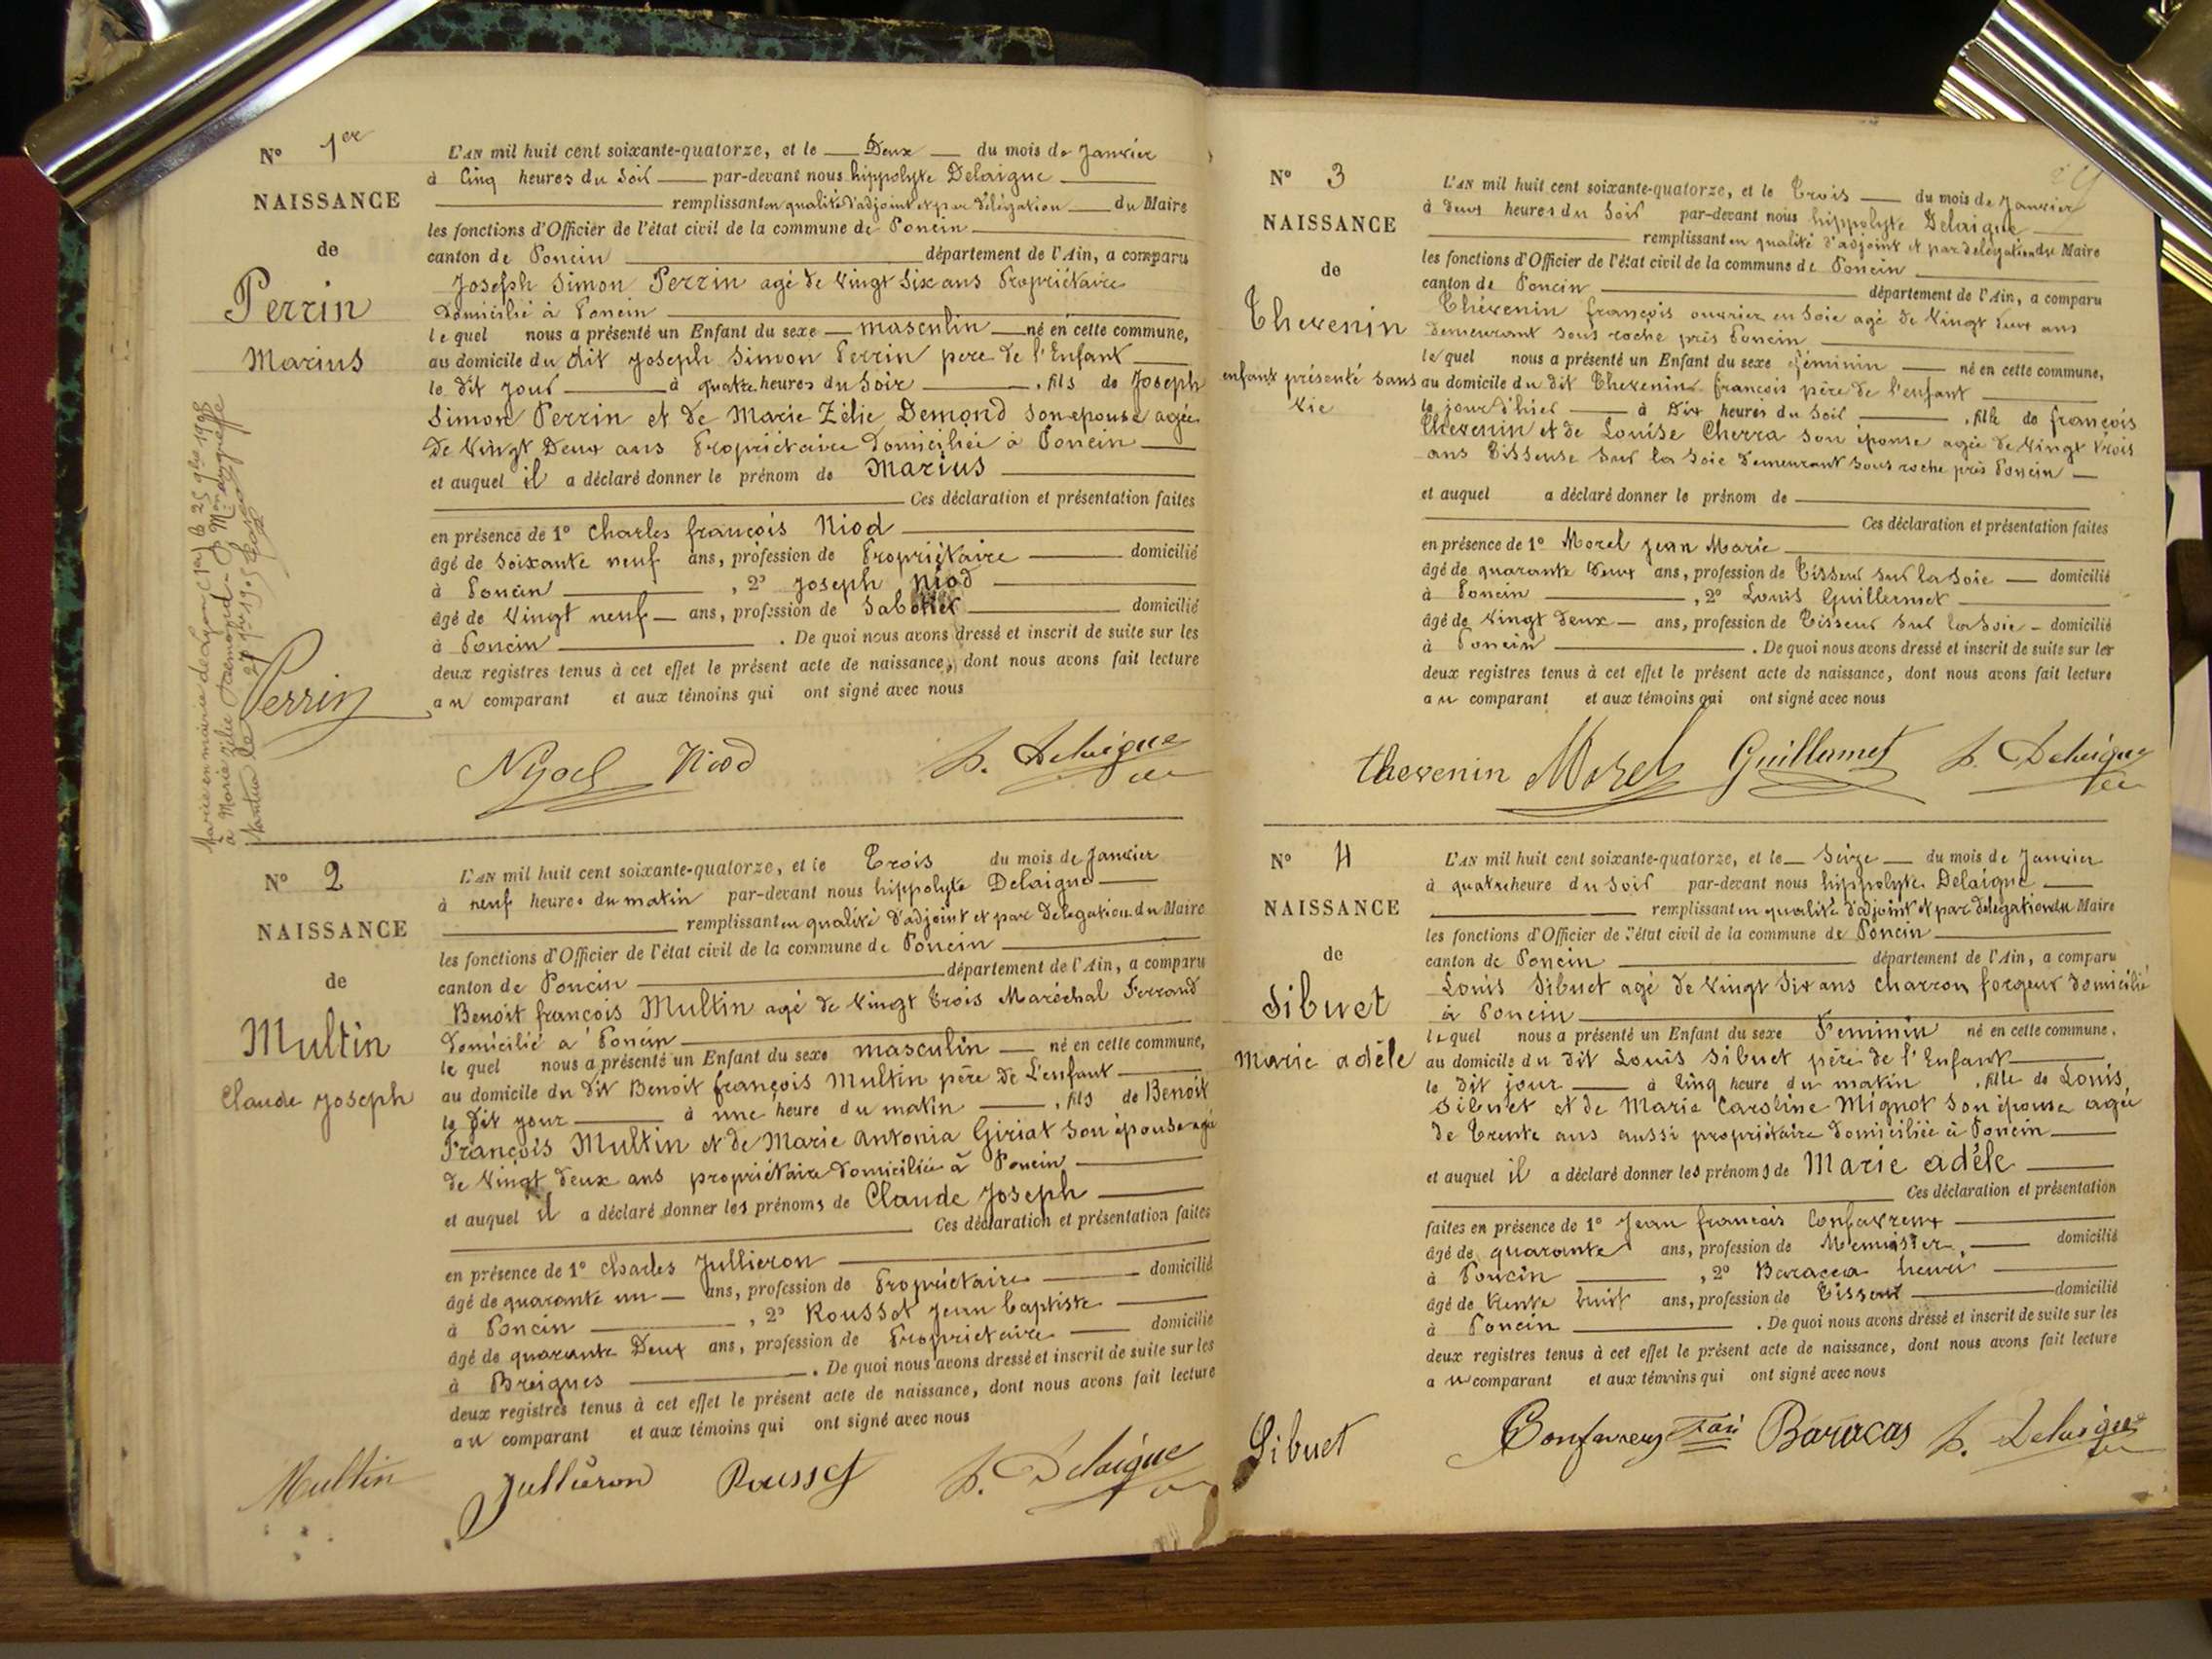 N° 1er
NAISSANCE
de
Perrin
Marius
L'AN mil huit cent soixante-quatorze, et le Deux du mois de Janvier
à Cinq heures du Soir par-devant nous hippolyte Delaigue
remplissant en qualité d'adjoint et par délégation du Maire
les fonctions d'Officier de l'état civil de la commune de Poncin
canton de Poncin département de l'Ain, a comparu
Joseph Simon Perrin agé de Vingt Six ans Propriétaire
Domicilié à Poncin
le quel nous a présenté un Enfant du sexe masculin né en cette commune,
au domicile du dit Joseph Simon Perrin pere de l'Enfant
le dit jour à quatre heures du Soir , fils de Joseph
Simon Perrin et de Marie Zélie Demond son epouse agée
De Vingt Deux ans Propriétaire domiciliée à Poncin
et auquel il a déclaré donner le prénom de Marius
Ces déclaration et présentation faites
en présence de 1° Charles françois Niod
âgé de Soixante neuf ans, profession de Propriétaire domicilié
à Poncin , 2° Joseph Niod
âgé de Vingt neuf ans, profession de Sabotier domicilié
à Poncin . De quoi nous avons dressé et inscrit de suite sur les
deux registres tenus à cet effet le présent acte de naissance, dont nous avons fait lecture
au comparant et aux témoins qui ont signé avec nous
Perrin
Niod h. Delaigue
N° 2
NAISSANCE
de
Multin
Claude Joseph
L'AN mil huit cent soixante-quatorze, et le Trois du mois de Janvier
à neuf heures du matin par-devant nous hippolyte Delaigue
remplissant en qualité d'adjoint et par délégation du Maire
les fonctions d'Officier de l'état civil de la commune de Poncin
canton de Poncin département de l'Ain, a comparu
Benoit françois Multin agé de Vingt Trois Maréchal Ferrand
Domicilié à Poncin
le quel nous a présenté un Enfant du sexe masculin né en cette commune,
au domicile du dit Benoit françois Multin père de L'enfant
le dit jour à une heure du matin , fils de Benoit
François Multin et de Marie Antonia Giriat son épouse agée
de Vingt deux ans propriétaire domiciliée à Poncin
et auquel il a déclaré donner les prénoms de Claude Joseph
Ces déclaration et présentation faites
en présence de 1° Charles Jullieron
âgé de quarante un ans, profession de Propriétaire domicilié
à Poncin , 2° Rousset Jean baptiste
âgé de quarante Deux ans, profession de Propriétaire domicilié
à Breignes . De quoi nous avons dressé et inscrit de suite sur les
deux registres tenus à cet effet le présent acte de naissance, dont nous avons fait lecture
au comparant et aux témoins qui ont signé avec nous
Multin Jullieron Rousset h. Delaigue
N° 3
NAISSANCE
de
Thevenin
enfant présenté sans
vie
L'AN mil huit cent soixante-quatorze, et le Trois du mois de Janvier
à deux heures du Soir par-devant nous hippolyte Delaigue
remplissant en qualité d'adjoint et par délégation du Maire
les fonctions d'Officier de l'état civil de la commune de Poncin
canton de Poncin département de l'Ain, a comparu
Thévenin françois ouvrier en Soie agé de Vingt deux ans
demeurant sous roche près Poncin
le quel nous a présenté un Enfant du sexe féminin né en cette commune,
au domicile du dit Thevenin françois père de l'enfant
le jour d'hier à Dix heures du Soir , fille de françois
Thevenin et de Louise Cherra son épouse agée de Vingt trois
ans Tisseuse sur la Soie demeurant sous roche près Poncin
et auquel a déclaré donner le prénom de
Ces déclaration et présentation faites
en présence de 1° Morel Jean Marie
âgé de quarante deux ans, profession de Tisseur sur la Soie domicilié
à Poncin , 2° Louis Guillermet
âgé de Vingt deux ans, profession de Tisseur sur la Soie domicilié
à Poncin . De quoi nous avons dressé et inscrit de suite sur les
deux registres tenus à cet effet le présent acte de naissance, dont nous avons fait lecture
au comparant et aux témoins qui ont signé avec nous
thevenin Morel Guillermet h. Delaigue
N° 4
NAISSANCE
de
Sibuet
Marie adèle
L'AN mil huit cent soixante-quatorze, et le Seize du mois de Janvier
à quatre heure du Soir par-devant nous hippolyte Delaigue
remplissant en qualité d'adjoint et par délégation du Maire
les fonctions d'Officier de l'état civil de la commune de Poncin
canton de Poncin département de l'Ain, a comparu
Louis Sibuet agé de Vingt Six ans Charron forgeur domicilié
à Poncin
le quel nous a présenté un Enfant du sexe Feminin né en cette commune,
au domicile du dit Louis Sibuet père de l'Enfant
le dit jour à Cinq heure du matin , fille de Louis
Sibuet et de Marie Caroline Mignot son épouse agée
de Trente ans aussi propriétaire domiciliée à Poncin
et auquel il a déclaré donner les prénoms de Marie adèle
Ces déclaration et présentation
faites en présence de 1° Jean françois Confavreux
âgé de quarante ans, profession de Menuisier domicilié
à Poncin , 2°
âgé de trente huit ans, profession de Tisseur domicilié
à Poncin . De quoi nous avons dressé et inscrit de suite sur les
deux registres tenus à cet effet le présent acte de naissance, dont nous avons fait lecture
au comparant et aux témoins qui ont signé avec nous
Sibuet Baracas h. Delaigue